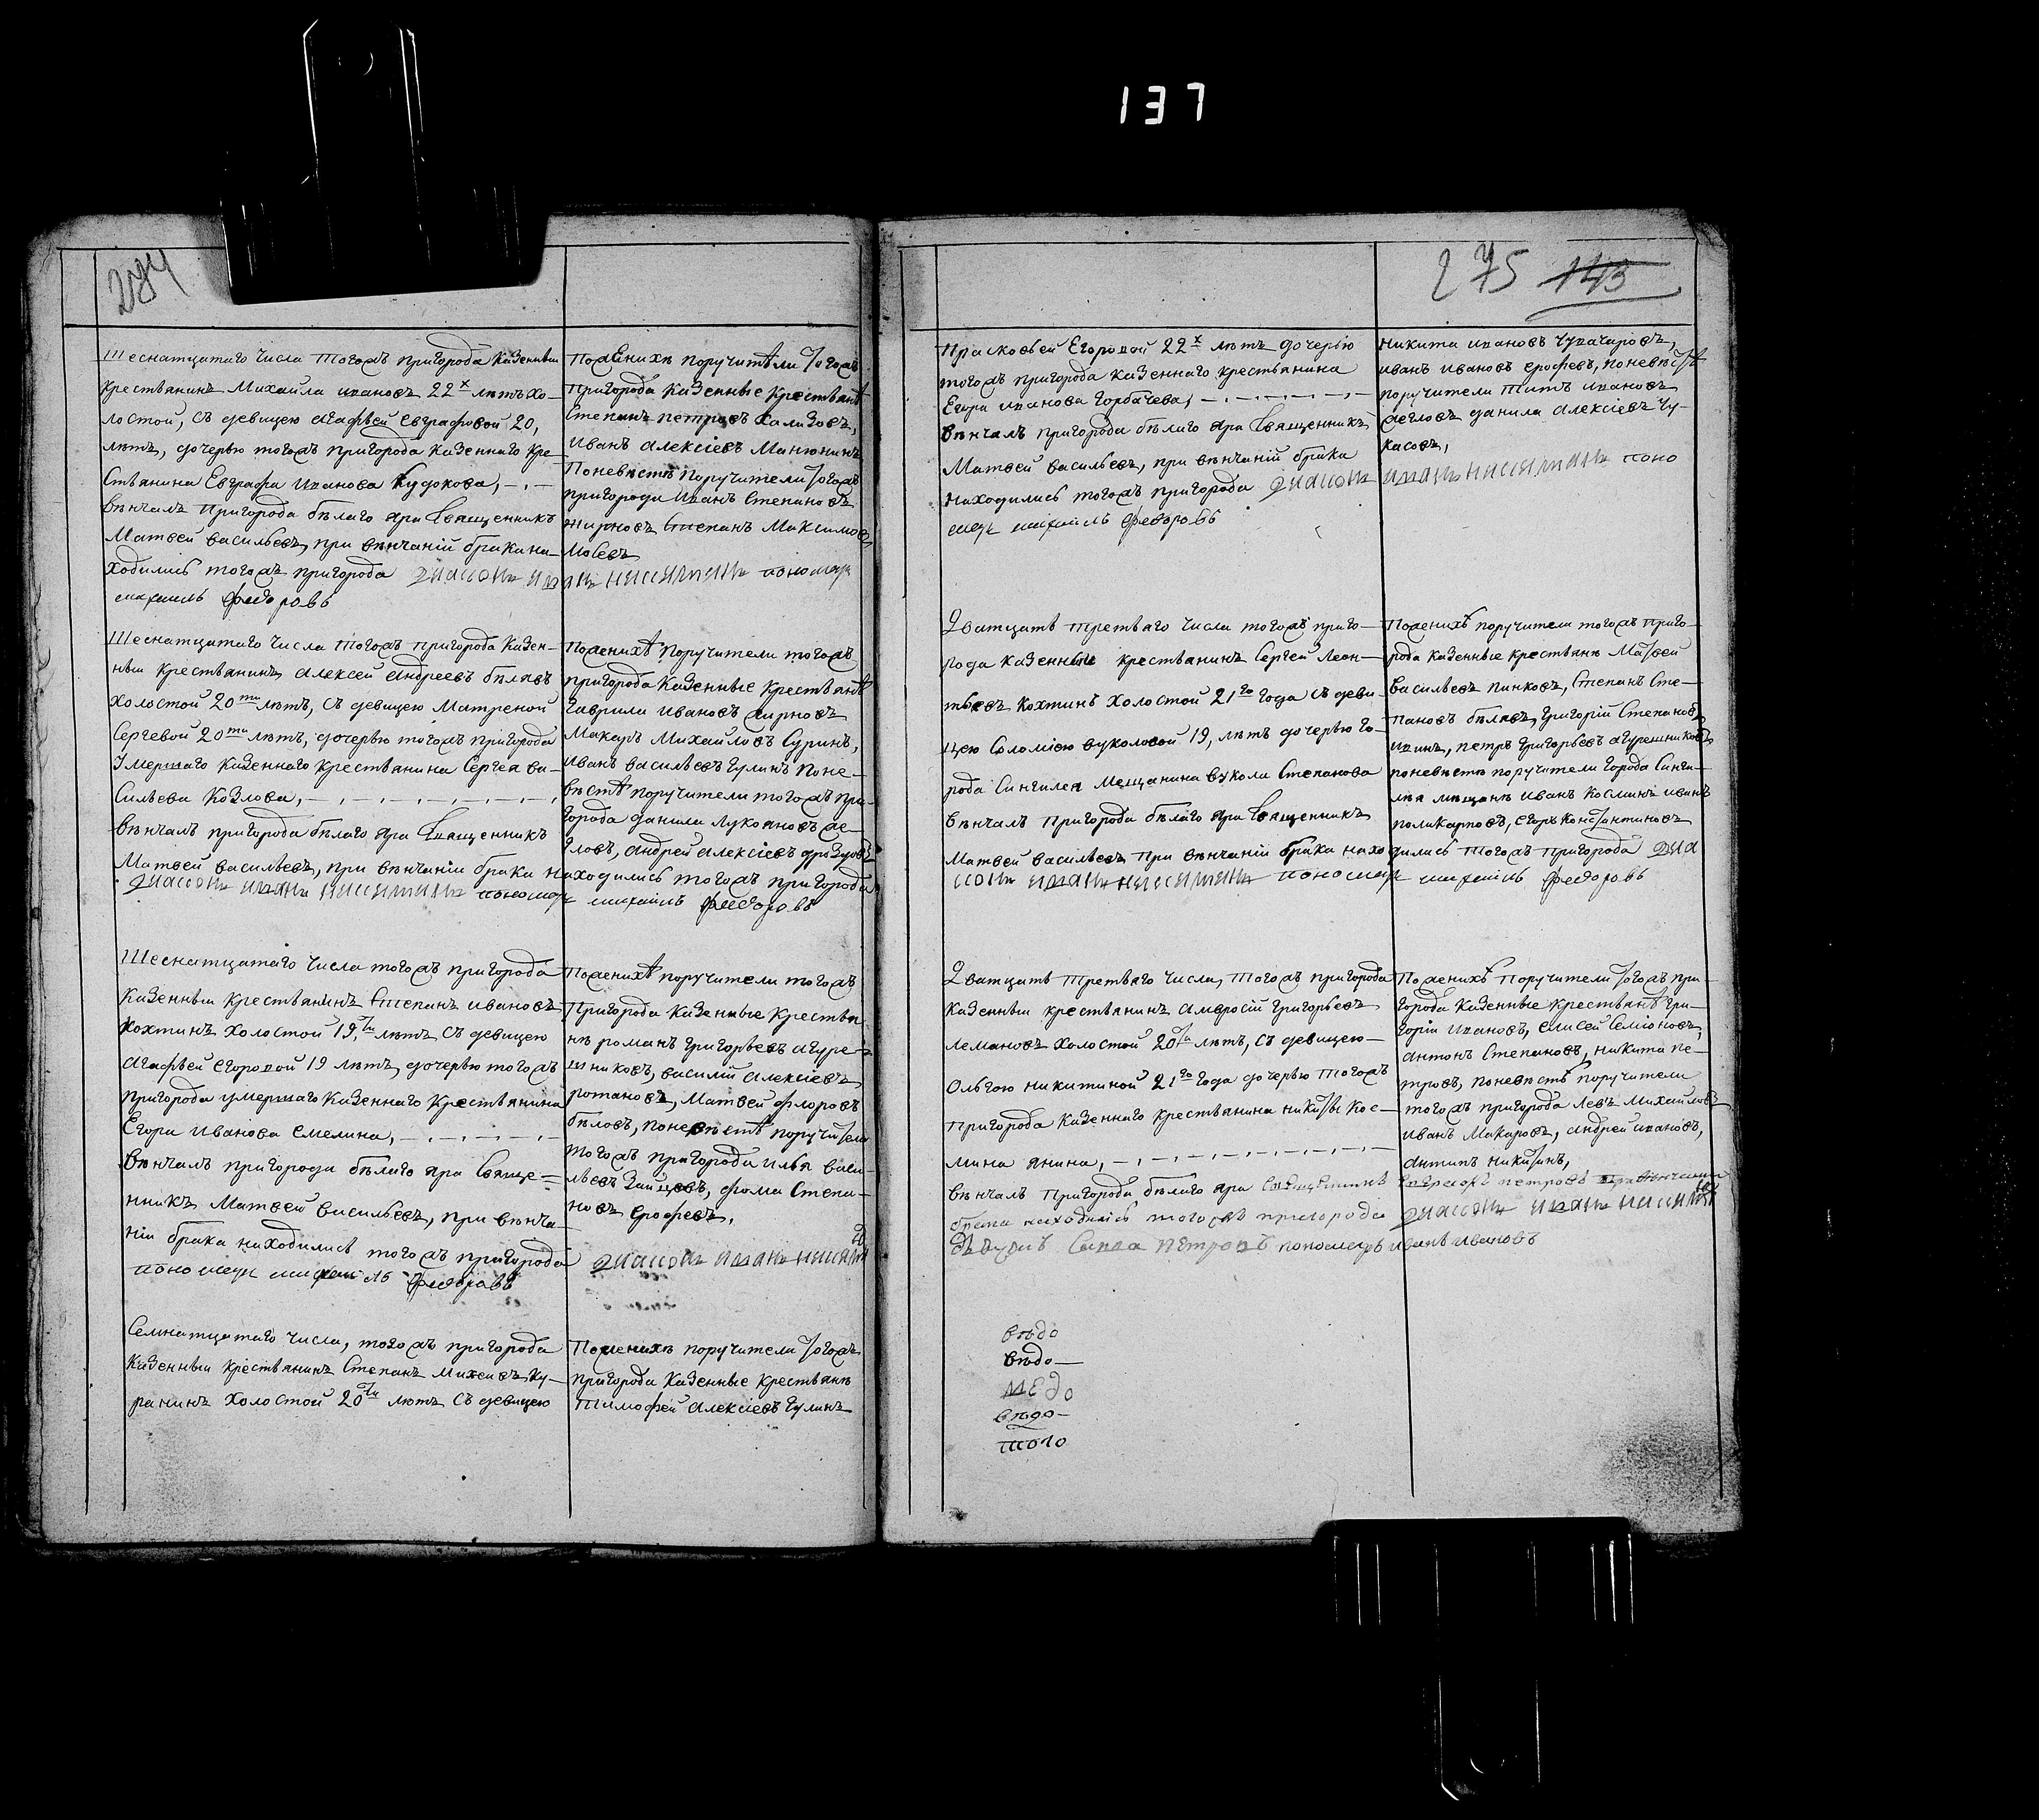 137
284
Шеснатцатаго числа тогожъ пригорода казенныи
крестьянинъ Михайла ивановъ 22х лѣтъ хо-
лостой, съ девицею агафьей Евграфовой 20,
лѣтъ, дочерью тогожъ пригорода казеннаго кре-
стьянина Евграфа иванова Кудокова,
вѣнчалъ пригорода бѣлаго яра священникъ
Матвей васильевъ, при вѣнчаніи брака на-
ходились тогожъ пригорода диаконъ иванъ никитинъ пономарь
михаилъ федоровъ
Поженихѣ поручители тогожъ
пригорода казенные крестьянѣ
Степанъ петровъ Хализовъ,
иванъ алексіевъ Манюнинъ
Поневѣстѣ поручители тогожъ
пригорода иванъ Степановъ
жирновъ Степанъ Максимовъ
Шеснатцатаго числа тогожъ пригорода казен-
ныи крестьянинъ алексей андреевъ бѣлявъ
холостой 20ти лѣтъ, съ девицею Матреной
Сергевой 20ти лѣтъ, дочерью тогожъ пригорода
умершаго казеннаго крестьянина Сергея ва-
сильева Козлова,
вѣнчалъ пригорода бѣлаго яра священникъ
Матвей васильевъ, при вѣнчаніи брака находились тогожъ пригорода
диаконъ иванъ никитинъ пономарь михаилъ федоровъ
Поженихѣ поручители тогожъ
пригорода казенные крестьянѣ
Гаврила ивановъ жирновъ
Макаръ Михайловъ Суринъ,
иванъ васильевъ Гулинъ поне-
вѣстѣ поручители тогожъ при-
города данила Лукояновъ же-
гловъ, андрей алексіевъ
Шеснатцатаго числа тогожъ пригорода
казенныи крестьянинъ Степанъ ивановъ
Кохтинъ холостои 19,ти лѣтъ съ девицею
агафьей егоровой 19 лѣтъ, дочерью тогожъ
пригорода умершаго казеннаго крестьянина
Егора иванова Смелина,
вѣнчалъ пригорода бѣлаго яра свяще=
нникъ Матвей васильевъ, при вѣнча
ніи брака находились тогожъ пригорода диаконъ иванъ никитинъ
пономарь михаилъ федоровъ
Поженихѣ поручители тогожъ
Пригорода казенные крестья
нѣ романъ григорьевъ агуре-
шниковъ, василіи алексіевъ
ротановъ, Матвей флоровъ
бѣловъ, поневѣстѣ поручители
тогожъ пригорода илья васи-
льевъ Зайцовъ, фома Степа-
новъ ерофеевъ,
Семнатцатаго числа, тогожъ пригорода
казенныи крестьянинъ Степанъ Михеивъ Ку-
ранинъ холостои 20ти лѣтъ съ девицею
Поженихѣ поручители тогожъ
пригорода казенные крестьянѣ
Тимофей алексіевъ Гулинъ
275 143
Прасковьей Егоровой 22х лѣтъ дочерью
тогожъ пригорода казеннаго крестьянина
Егора иванова Горбачева,
вѣнчалъ пригорода бѣлаго яра священникъ
Матвей васильевъ, при вѣнчаніи брака
находились тогожъ пригорода диаконъ иванъ никитинъ поно
марь михаилъ федоровъ
никита ивановъ
иванъ ивановъ ерофеевъ, поневѣстѣ
поручители Титъ ивановъ
жегловъ данила алексіевъ Чу-
касовъ,
Дватцать третьаго числа тогожъ приго-
рода казенные крестьянинъ Сергей Леон-
тьевъ Кохтинъ холостой 21го года съ деви-
цею Соломіею вуколовой 19, лѣтъ дочерью го-
рода Сингилея мещанина вукола Степанова
вѣнчалъ пригорода бѣлаго яра священникъ
Матвей васильевъ при вѣнчаніи брака находились тогожъ пригорода диа
конъ иванъ никитинъ пономарь михаилъ федоровъ
Поженихѣ поручители тогожъ приго-
рода казенные крестьянѣ Матвей
васильевъ пинковъ, Степанъ Сте-
пановъ бѣлявъ, григоріи Степановъ
петръ григорьевъ агурешниковъ
поневѣстѣ поручители города Синги-
лея мещанѣ иванъ Косминъ иванъ
поликарповъ, егоръ Константиновъ
Дватцать третьаго числа, тогожъ пригорода
казенныи крестьянинъ амвросіи григорьевъ
Лемановъ холостой 20ти лѣтъ, съ девицею
Ольгою никитиной 21го года дочерью тогожъ
пригорода казеннаго крестьянина никиты Кос-
мина янина,
вѣнчалъ пригорода бѣлаго яра священникъ петровъ при вѣнчаніи
брака находились тогожъ пригорода диаконъ иванъ никитинъ
петровъ пономарь иванъ ивановъ
Поженихѣ поручители тогожъ при-
города казенные крестьянѣ гри-
горіи ивановъ, елисей Семіоновъ,
антонъ Степановъ, никита пе-
тровъ, поневѣстѣ поручители
тогожъ пригорода Левъ Михайловъ
иванъ Макаровъ, андрей ивановъ,
антипъ никитинъ,